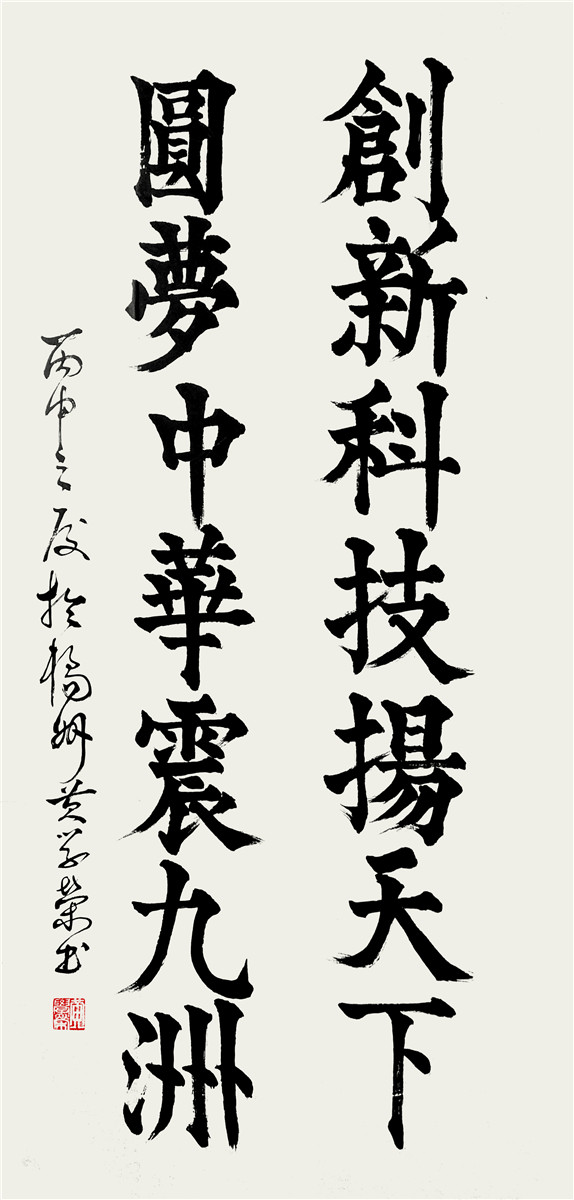 創新科技揚天下
圓夢中華震九洲
丙申之夏於揚州黄学榮书